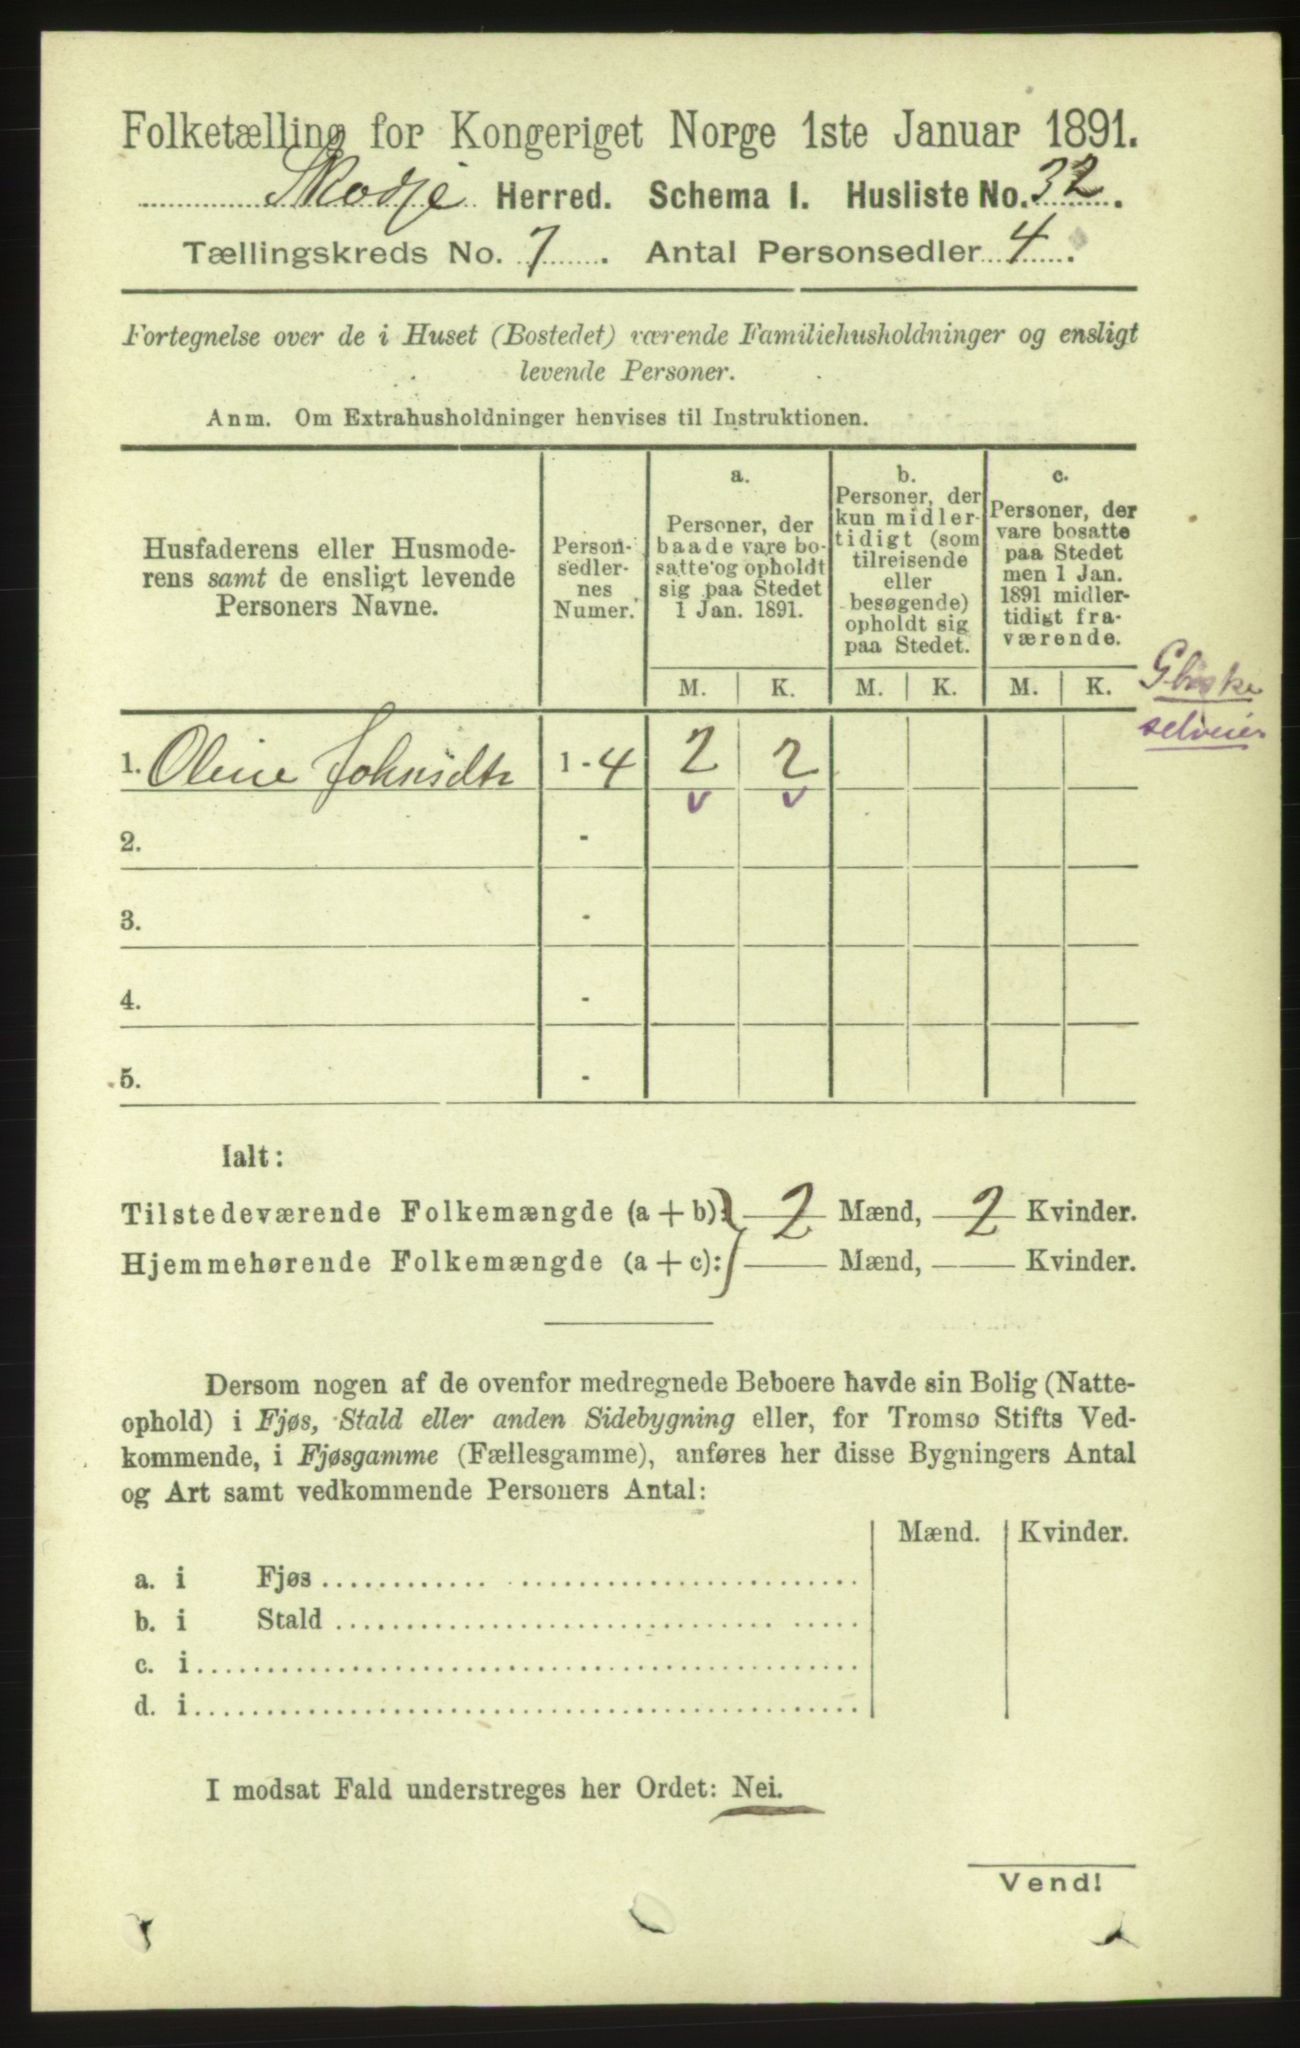 Folketælling for Kongeriget Norge 1ste Januar 1891.
Skodje Herred. Schema I. Husliste No. 32.
Tællingskreds No. 7. Antal Personsedler 4.
Fortegnelse over de i Huset (Bostedet) værende Familiehusholdninger og ensligt
levende Personer.
Anm. Om Extrahusholdninger henvises til Instruktionen.
Husfaderens eller Husmode-
rens samt de ensligt levende
Personers Navne.
Person-
sedler-
nes
Numer.
a.
Personer, der
baade vare bo-
satte og opholdt
sig paa Stedet
1 Jan. 1891.
b.
Personer, der
kun midler-
tidigt (som
tilreisende
eller
besøgende)
opholdt sig
paa Stedet.
c.
Personer, der
vare bosatte
paa Stedet
men 1 Jan.
1891 midler-
tidigt fra-
værende.
M. K. M. K. M. K.
selveier
1. Oline Johnsdtr 1 - 4 2 2
v v
2. -
3. -
4. -
5. -
Ialt:
Tilstedeværende Folkemængde (a + b): 2 Mænd, 2 Kvinder.
Hjemmehørende Folkemængde (a + c): Mænd, Kvinder.
Dersom nogen af de ovenfor medregnede Beboere havde sin Bolig (Natte-
ophold) i Fjøs, Stald eller anden Sidebygning eller, for Tromsø Stifts Ved-
kommende, i Fjøsgamme (Fællesgamme), anføres her disse Bygningers Antal
og Art samt vedkommende Personers Antal:
Mænd. Kvinder.
a. i Fjøs
b. i Stald
c. i
d. i
I modsat Fald understreges her Ordet: Nei.
Vend!